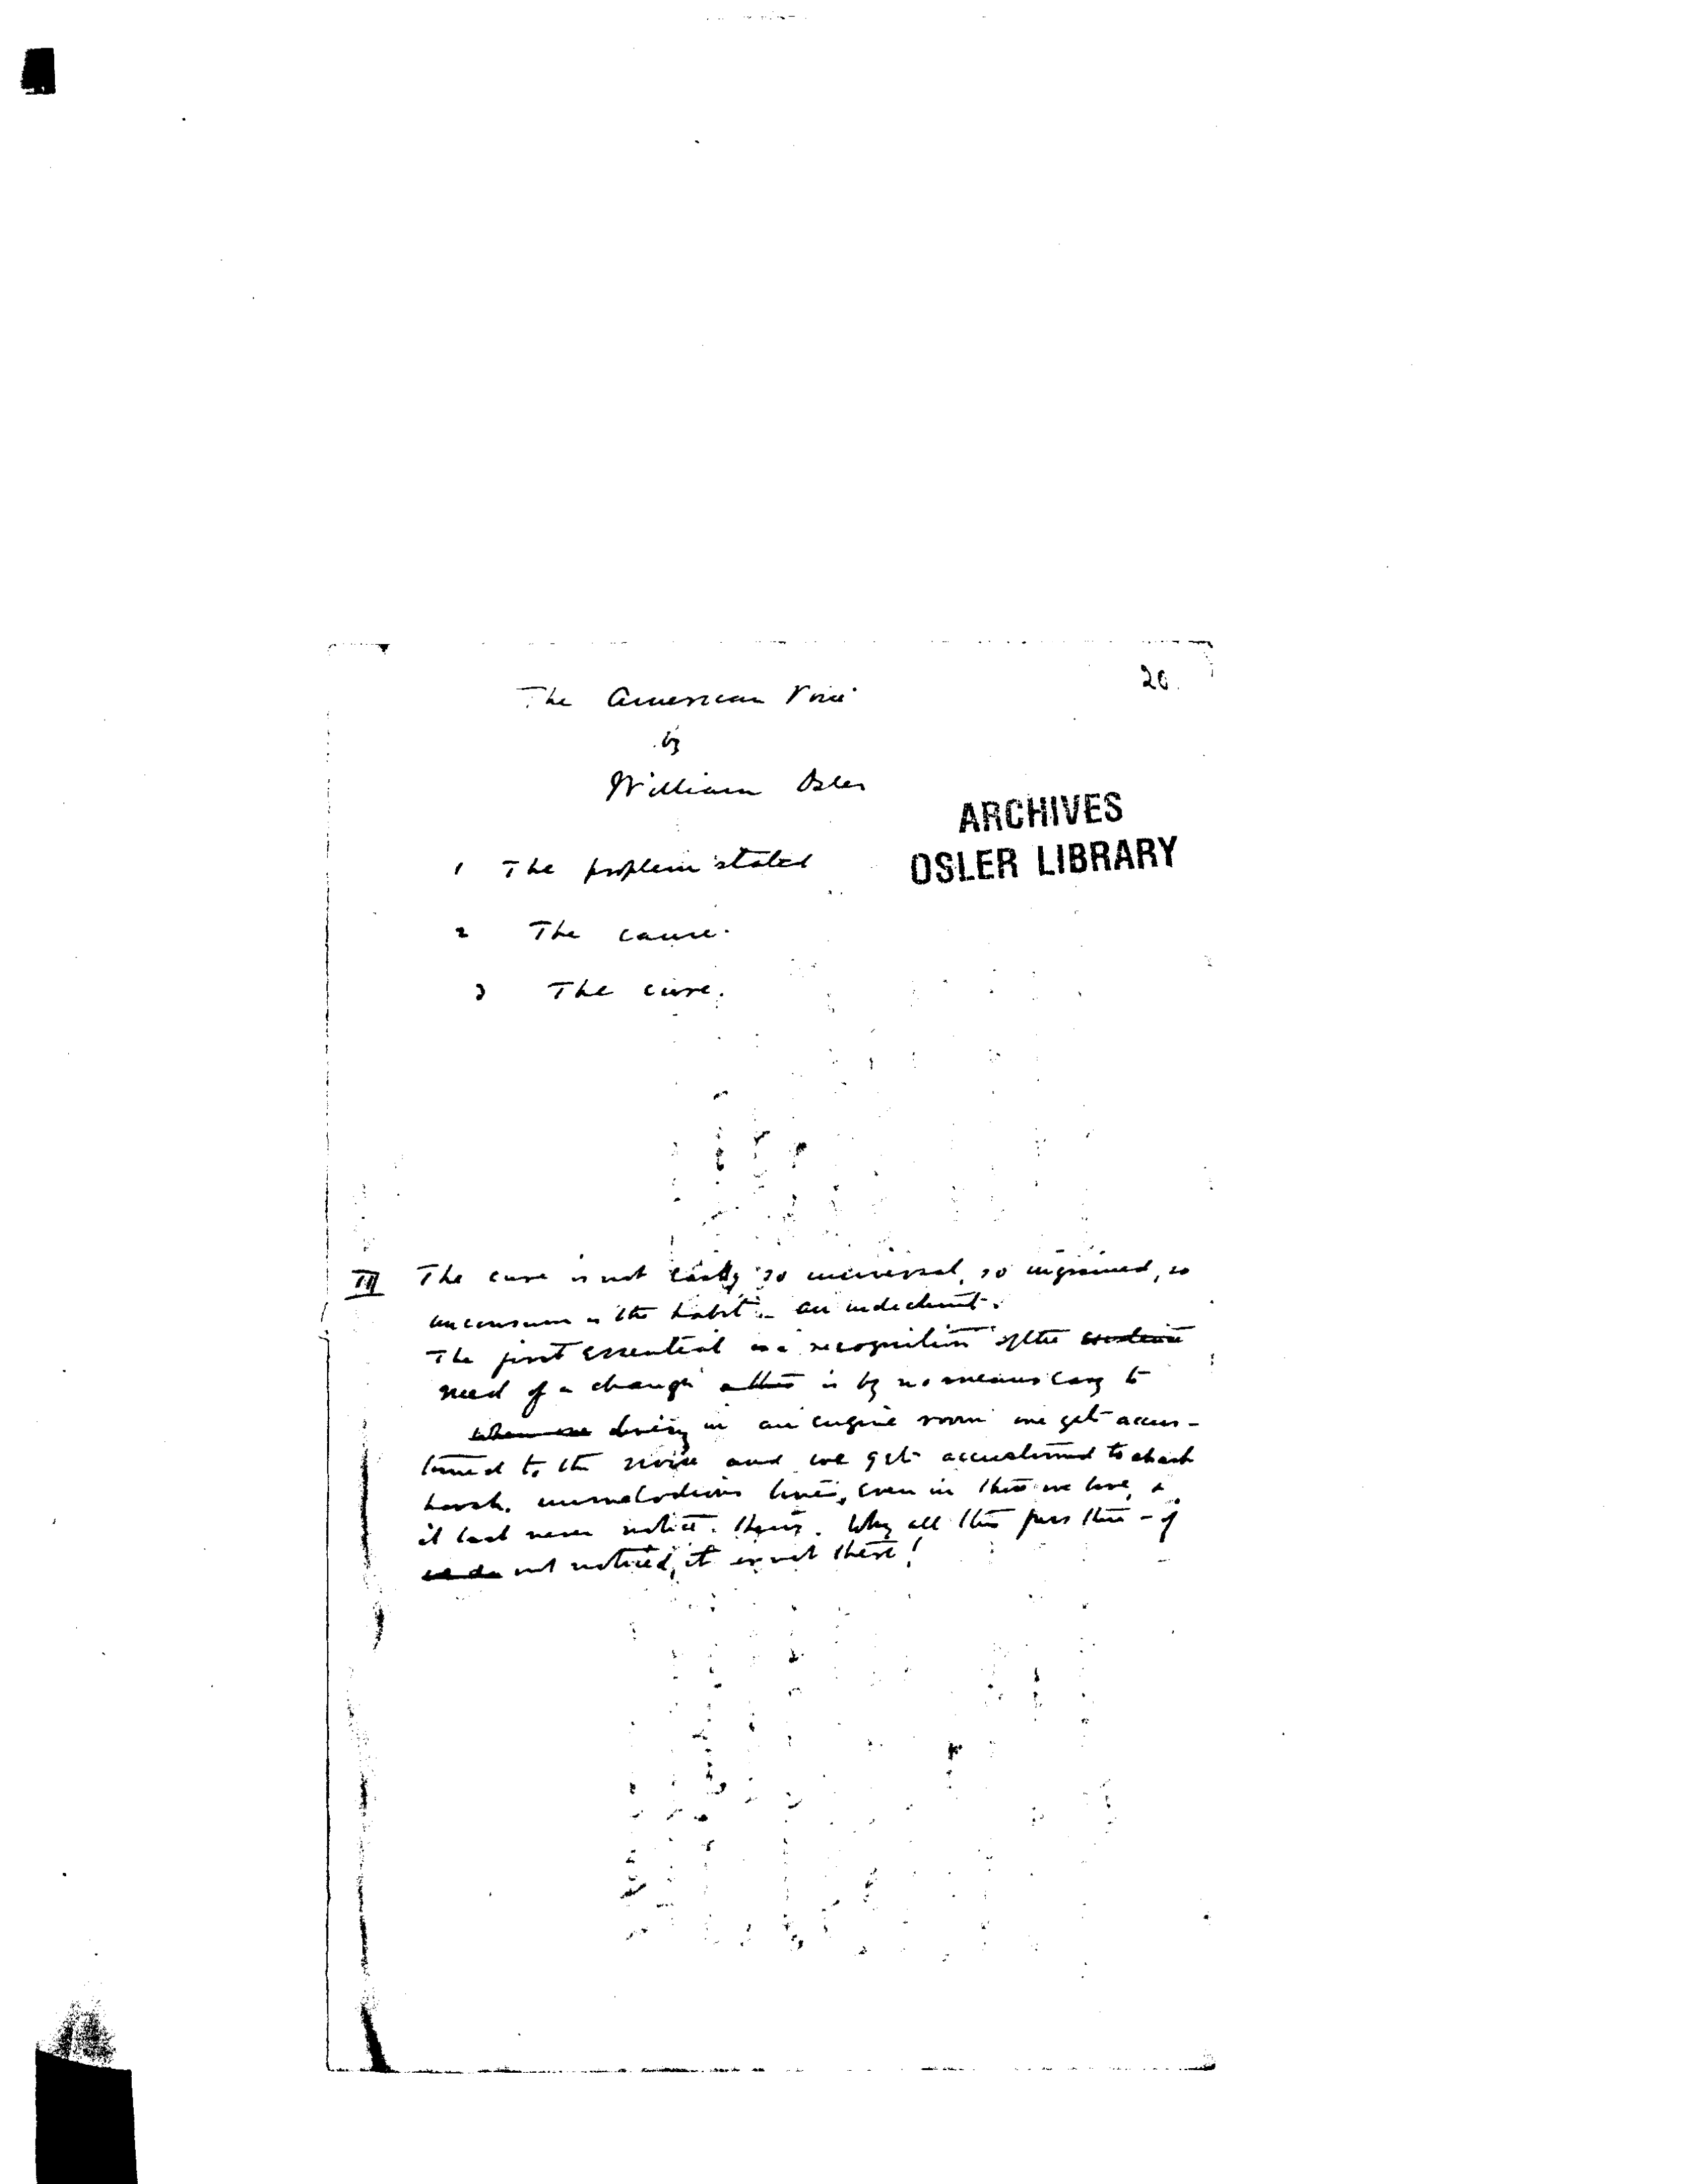 20.
The American Voice
by
William Osler
ARCHIVES
OSLER LIBRARY
1 The problem stated
2 The cause.
3 The cure.
III The cure is not easy so universal, so ingrained, so
unconscious is the habit.
The first essential is a recognition of the existence
need of a change & this is by no means easy to
When one living in an engine room one gets accus-
tomed to the noise and we get accustomed to
harsh, unmelodious tones, even in those we love, &
at last never notice them. Why all this fuss then - if
we do not noticed, it is not there!